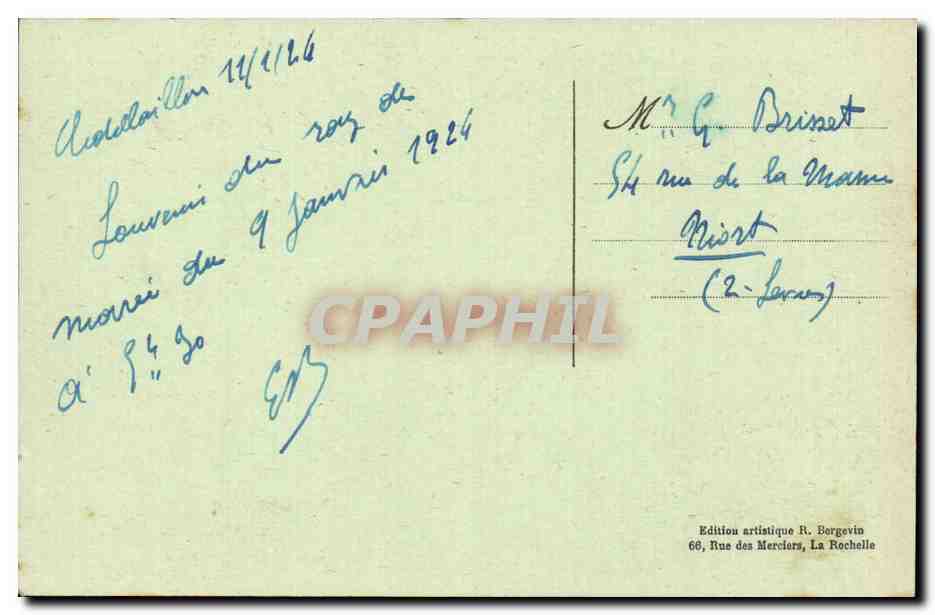 Chatelaillon 11/1/24
Souvenir du raz de
marée du 9 Janvier 1924
à 5h 30
Mr G. Brisset
54 rue de la Marne
Niort
(2-Sevres)
CPAPHIL
Edition artistique R. Bergevin
66, Rue des Merciers, La Rochelle